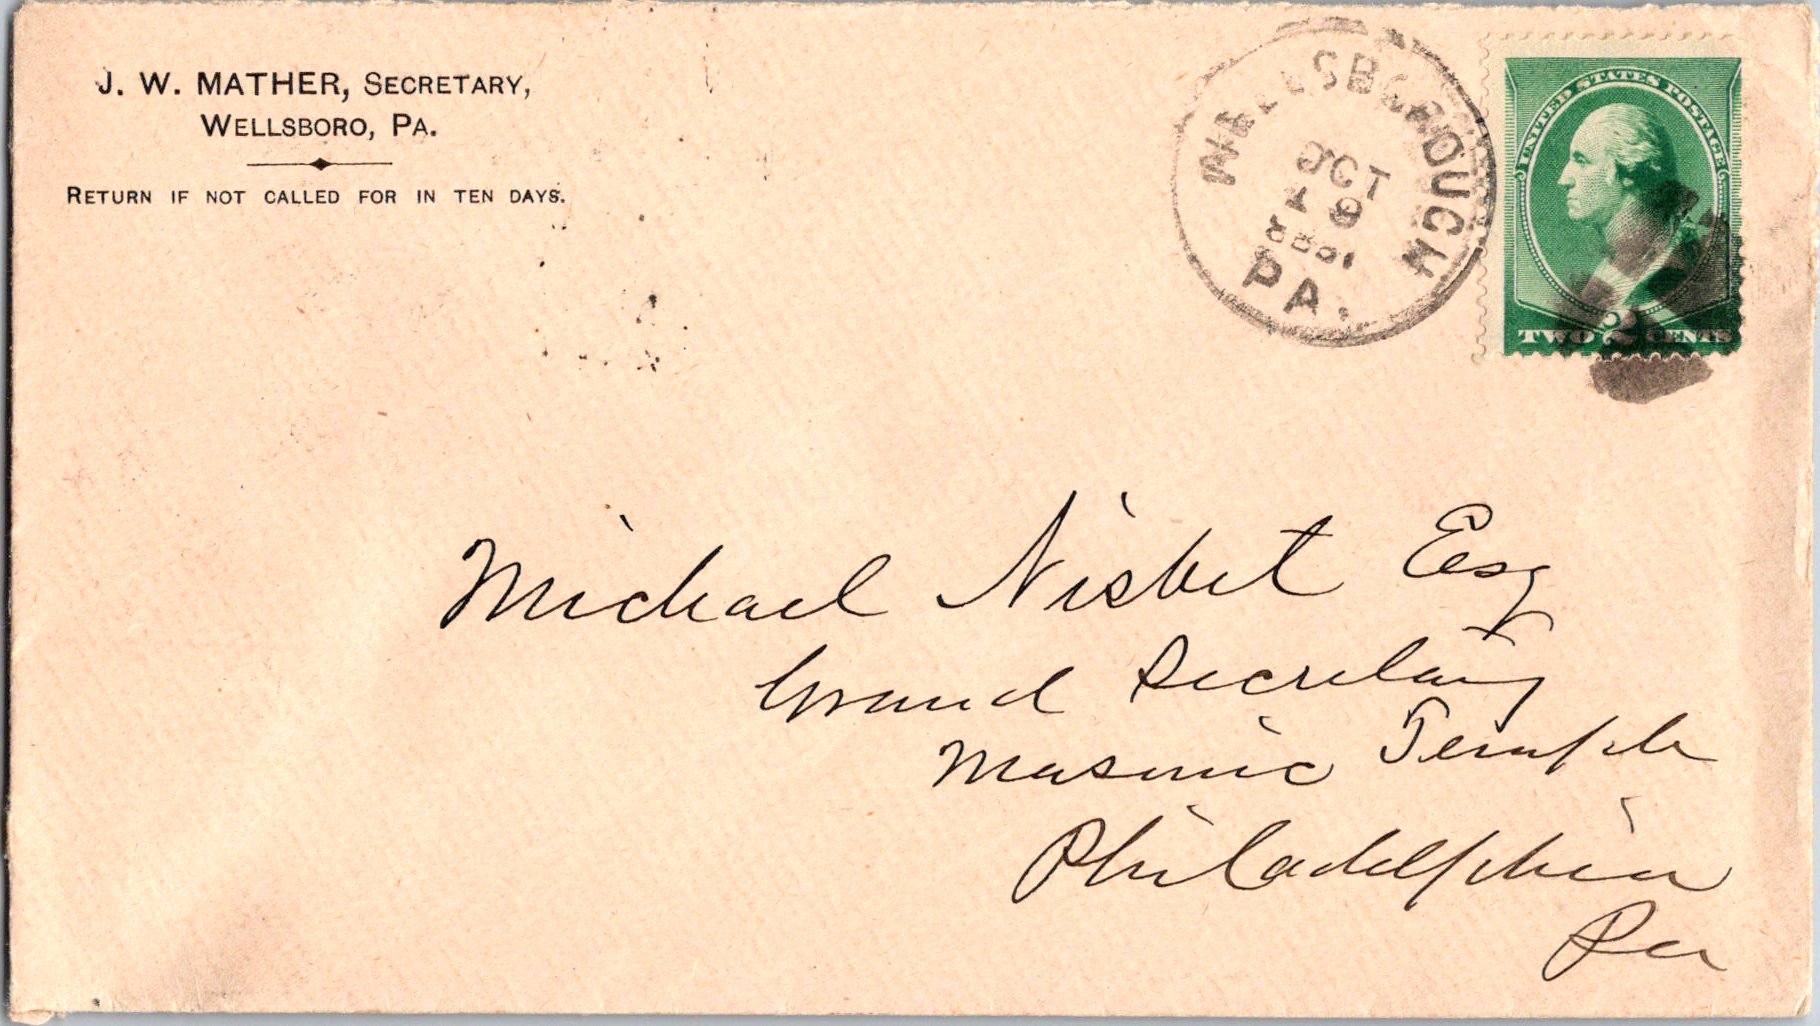 J. W. MATHER, SECRETARY,
WELLSBORO, PA.
RETURN IF NOT CALLED FOR IN TEN DAYS.
WELLSBOROUGH
OCT
PA.
UNITED STATES POSTAGE
TWO 2 CENTS
Michael Nisbet Esq
Grand Secretary
Masonic Temple
Philadelphia
Pa